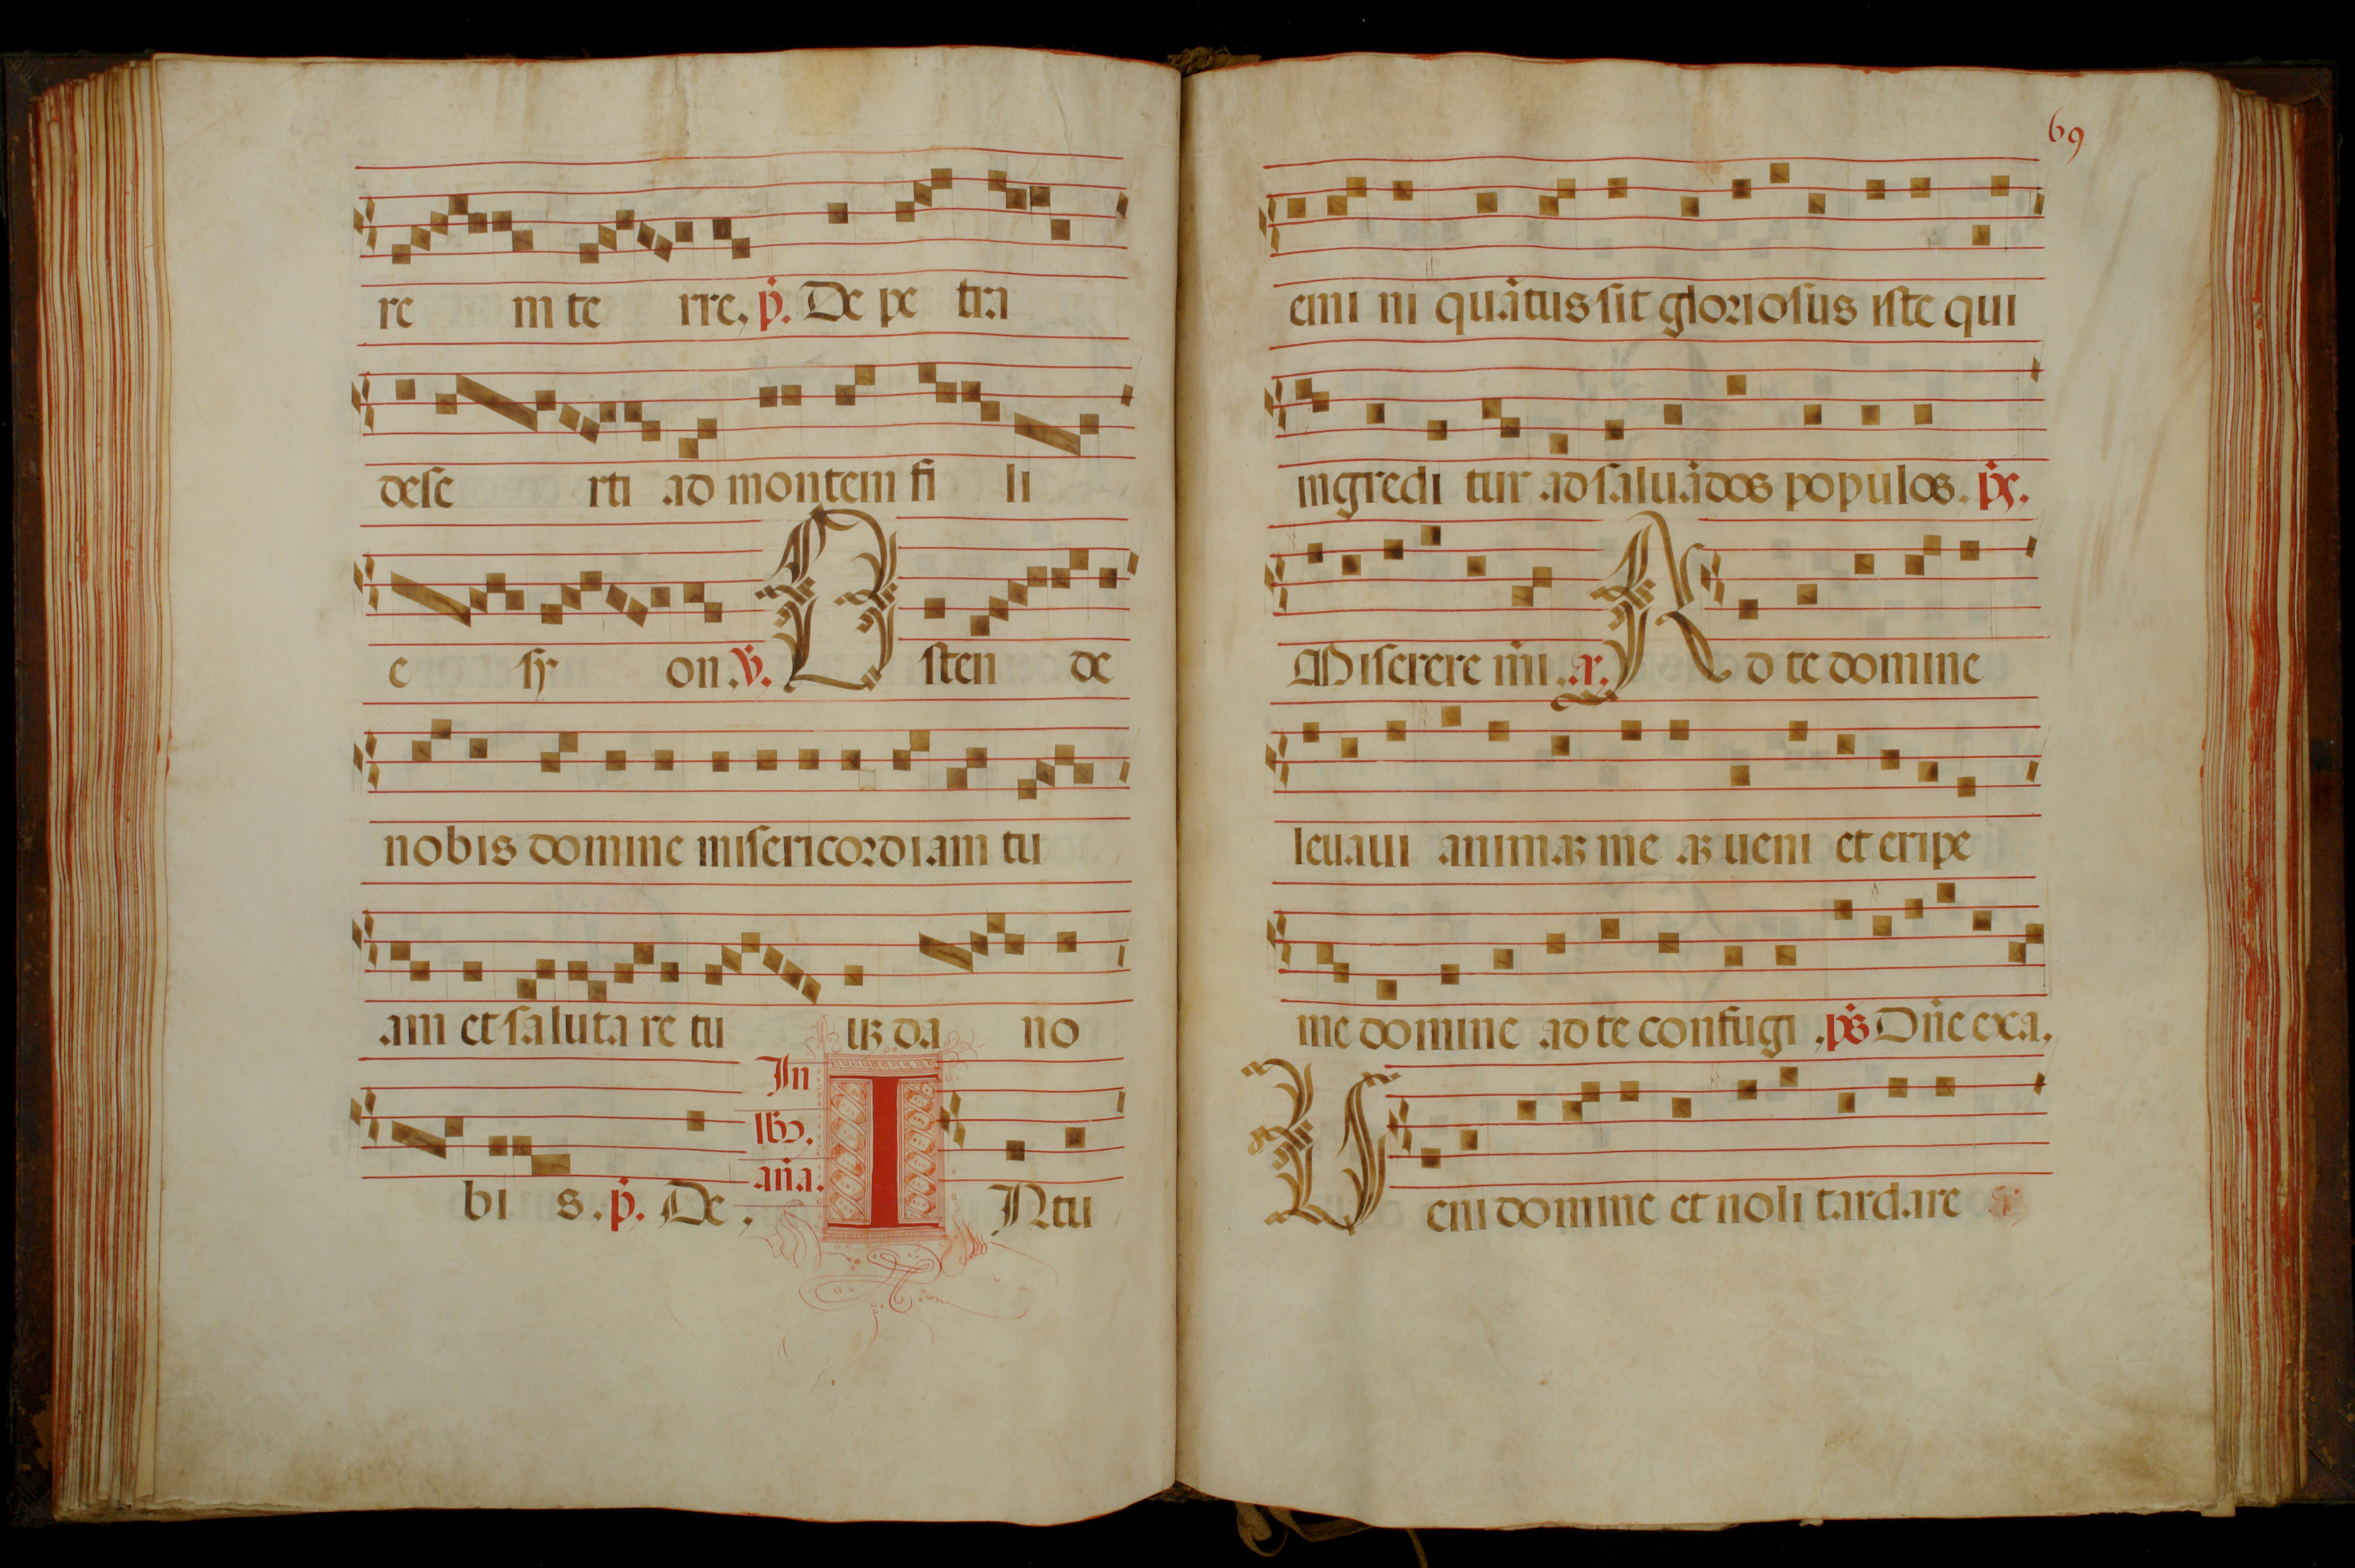 re m te rre. p̄. De pe tra
deserti ad montem fi li
e sy on. v̄. Osten de
nobis domine misericordiam tu
am et salutare tu uꝫ da no
In
lb̄z.
an̄a.
bi s. p̄. De. INtu
69
emi ni quātus sit gloriosus iste qui
ingredi tur ad saluādos populos. p̄s.
Miserere m̄i. a. Ad te domine
leuaui animaꝫ me aꝫ ueni et eripe
me domine ad te confugi. p̄s Dn̄e exa.
Ueni domine et noli tardare